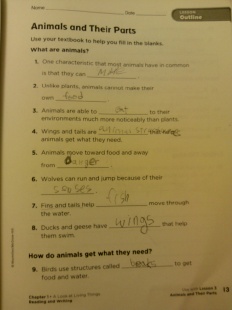 Name
Date
LESSON
Outline
Animals and Their Parts
Use your textbook to help you fill in the blanks.
What are animals?
1. One characteristic that most animals have in common
is that they can
2. Unlike plants, animals cannot make their
own food.
3. Animals are able to to their
environments much more noticeably than plants.
4. Wings and tails are that help
animals get what they need.
5. Animals move toward food and away
from danger.
6. Wolves can run and jump because of their
7. Fins and tails help fish move through
the water.
8. Ducks and geese have wings that help
them swim.
How do animals get what they need?
9. Birds use structures called beaks to get
food and water.
Chapter 1 • A Look at Living Things
Reading and Writing
Lesson 3
Animals and Their Parts
13